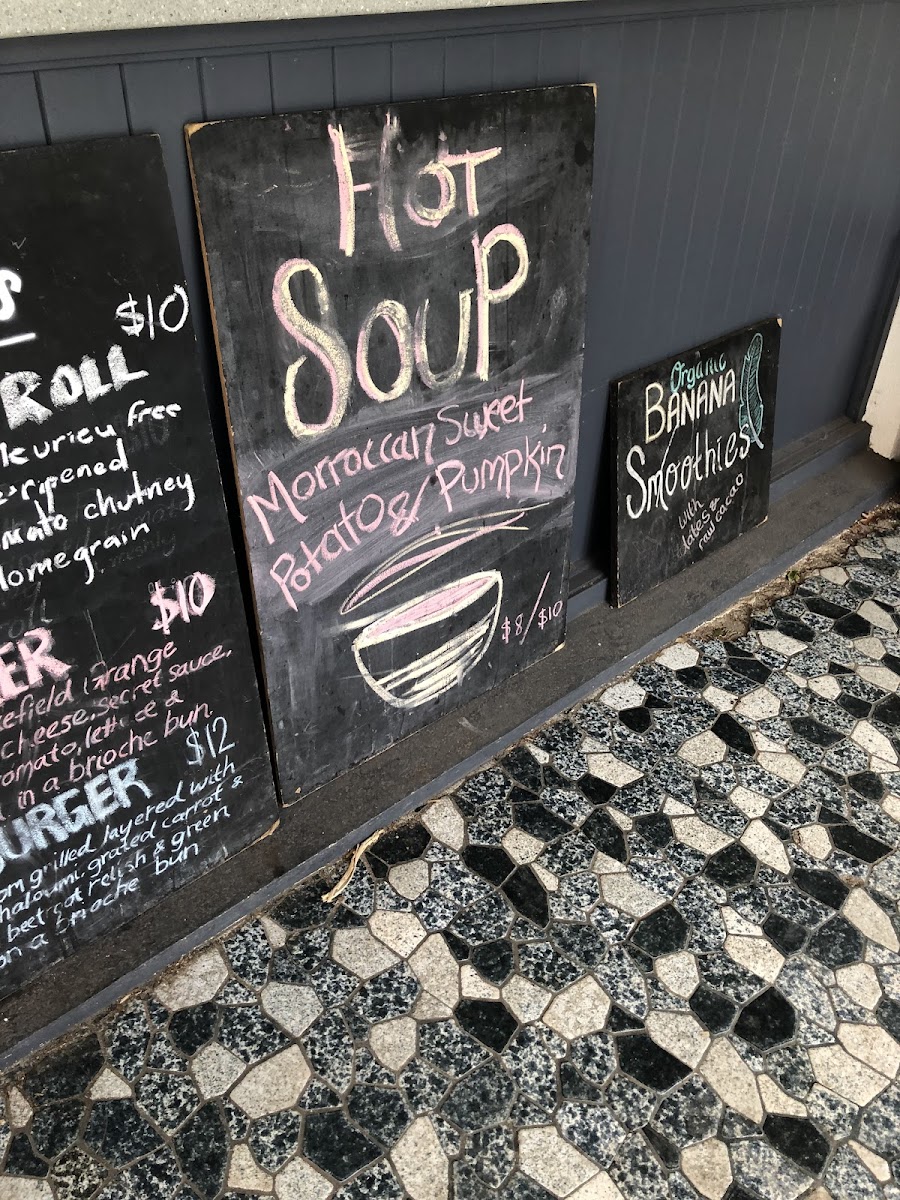 S
$10
ROLL
free
ripened
chutney
$10
ER
range
cheese, secret sauce,
tomato, lettuce &
in a brioche bun.
$12
BURGER
grilled layered with
haloumi, grated carrot &
beetroot relish & green
on a brioche bun
HOT
SOUP
Morroccan Sweet
Potato & Pumpkin
$8/$10
Organic
BANANA
Smoothies
with
dates &
raw cacao